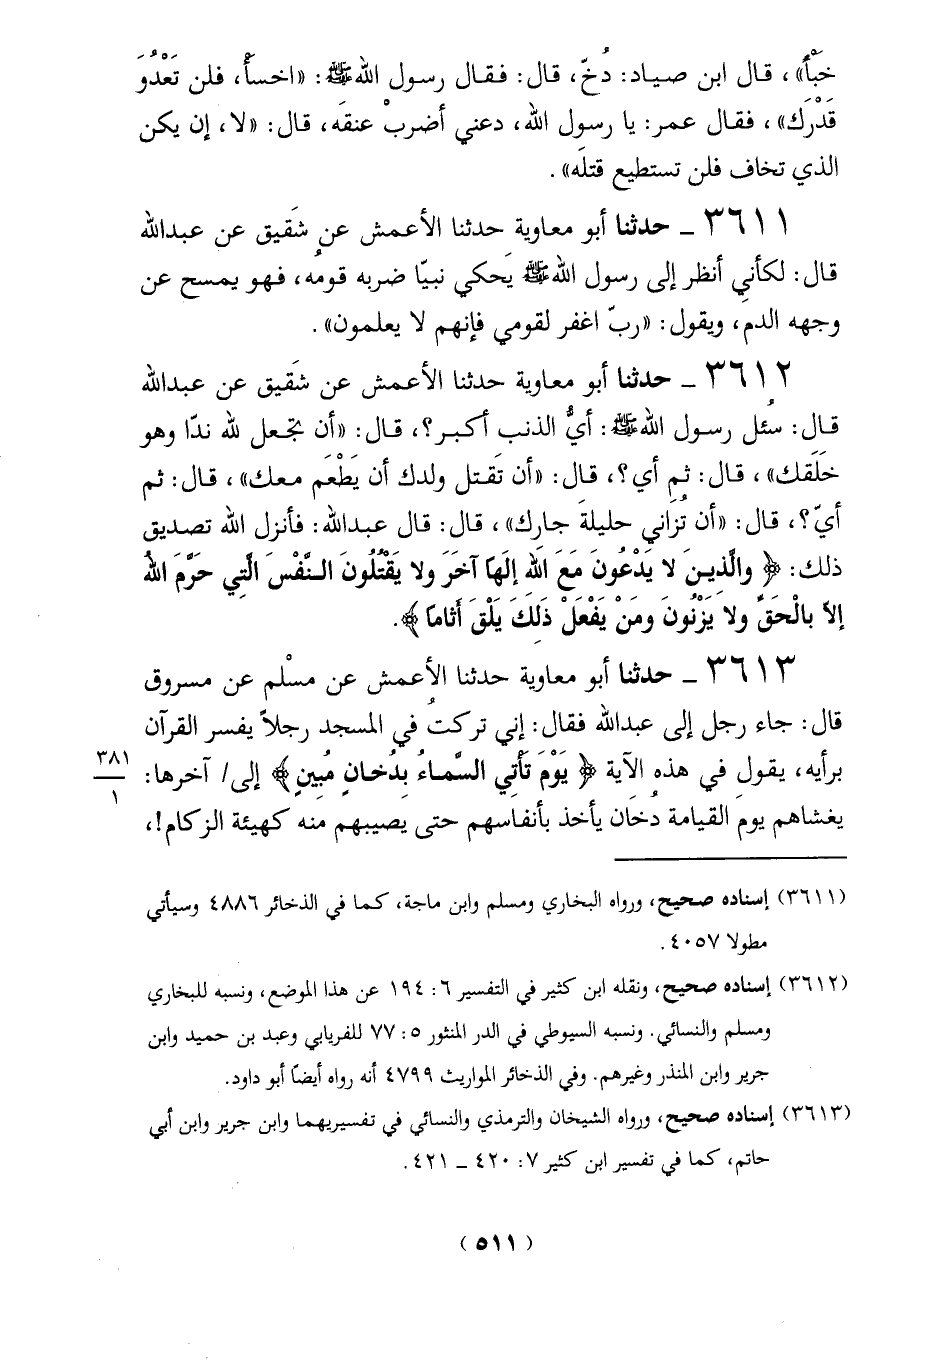 خَبْأً»، قال ابن صياد: دُخّ، قال: فقال رسول الله ﷺ: «اخسأْ، فلن تَعْدُوَ
قَدْرَك»، فقال عمر: يا رسول الله، دعني أضربْ عنقه، قال: «لا، إن يكن
الذي تخاف فلن تستطيع قتلَه».
٣٦١١ ـ حدثنا أبو معاوية حدثنا الأعمش عن شَقيق عن عبدالله
قال: لكأني أنظر إلى رسول الله ﷺ يَحكي نبيّا ضربه قومُه، فهو يمسح عن
وجهه الدمَ، ويقول: «ربّ اغفر لقومي فإنهم لا يعلمون».
٣٦١٢ ـ حدثنا أبو معاوية حدثنا الأعمش عن شَقيق عن عبدالله
قال: سُئل رسول الله ﷺ: أيُّ الذنب أكبر؟، قال: «أن تجعل لله ندّا وهو
خَلَقك»، قال: ثم أي؟، قال: «أن تقتل ولدك أن يَطْعَم معك»، قال: ثم
أيّ؟، قال: «أن تُزَاني حليلةَ جارك»، قال: قال عبدالله: فأنزل الله تصديق
ذلك: ﴿ والَّذِينَ لا يَدْعُونَ مَعَ اللهِ إلَهًا آخَرَ ولا يَقْتُلُونَ النَّفْسَ الَّتِي حَرَّمَ اللهُ
إلاّ بالْحَقِّ ولا يَزْنُونَ ومَنْ يَفْعَلْ ذَلِكَ يَلْقَ أثَامًا ﴾.
٣٦١٣ ـ حدثنا أبو معاوية حدثنا الأعمش عن مسْلم عن مسروق
قال: جاء رجل إلى عبدالله فقال: إني تركتُ في المسجد رجلاً يفسر القرآن
برأيه، يقول في هذه الآية ﴿ يَوْمَ تَأتِي السَّماءُ بِدُخانٍ مُبِينٍ ﴾ إلى/ آخرها:
٣٨١
١
يغشاهم يومَ القيامة دُخَان يأخذ بأنفاسهم حتى يصيبهم منه كهيئة الزكام!،
(٣٦١١) إسناده صحيح، ورواه البخاري ومسلم وابن ماجة، كما في الذخائر ٤٨٨٦ وسيأتي
مطولا ٤٠٥٧.
(٣٦١٢) إسناده صحيح، ونقله ابن كثير في التفسير ٦: ١٩٤ عن هذا الموضع، ونسبه للبخاري
ومسلم والنسائي. ونسبه السيوطي في الدر المنثور ٥: ٧٧ للفريابي وعبد بن حميد وابن
جرير وابن المنذر وغيرهم. وفي الذخائر المواريث ٤٧٩٩ أنه رواه أيضًا أبو داود.
(٣٦١٣) إسناده صحيح، ورواه الشيخان والترمذي والنسائي في تفسيريهما وابن جرير وابن أبي
حاتم، كما في تفسير ابن كثير ٧: ٤٢٠ ـ ٤٢١.
(٥١١)